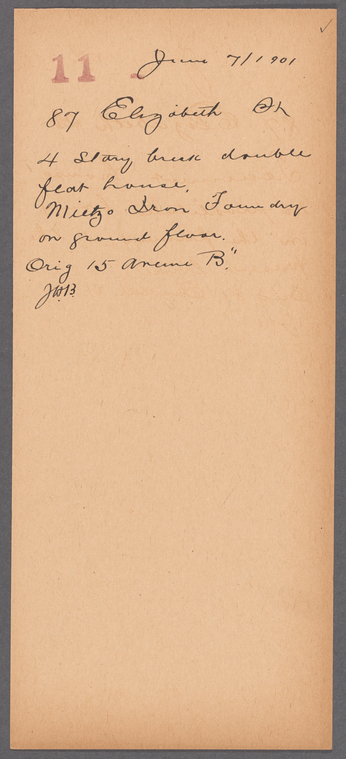 11
June 7/1901
87 Elizabeth St
4 Story brick double
flat house.
Mietz Iron Foundry
on ground floor.
Orig 15 Avenue B."
JWB